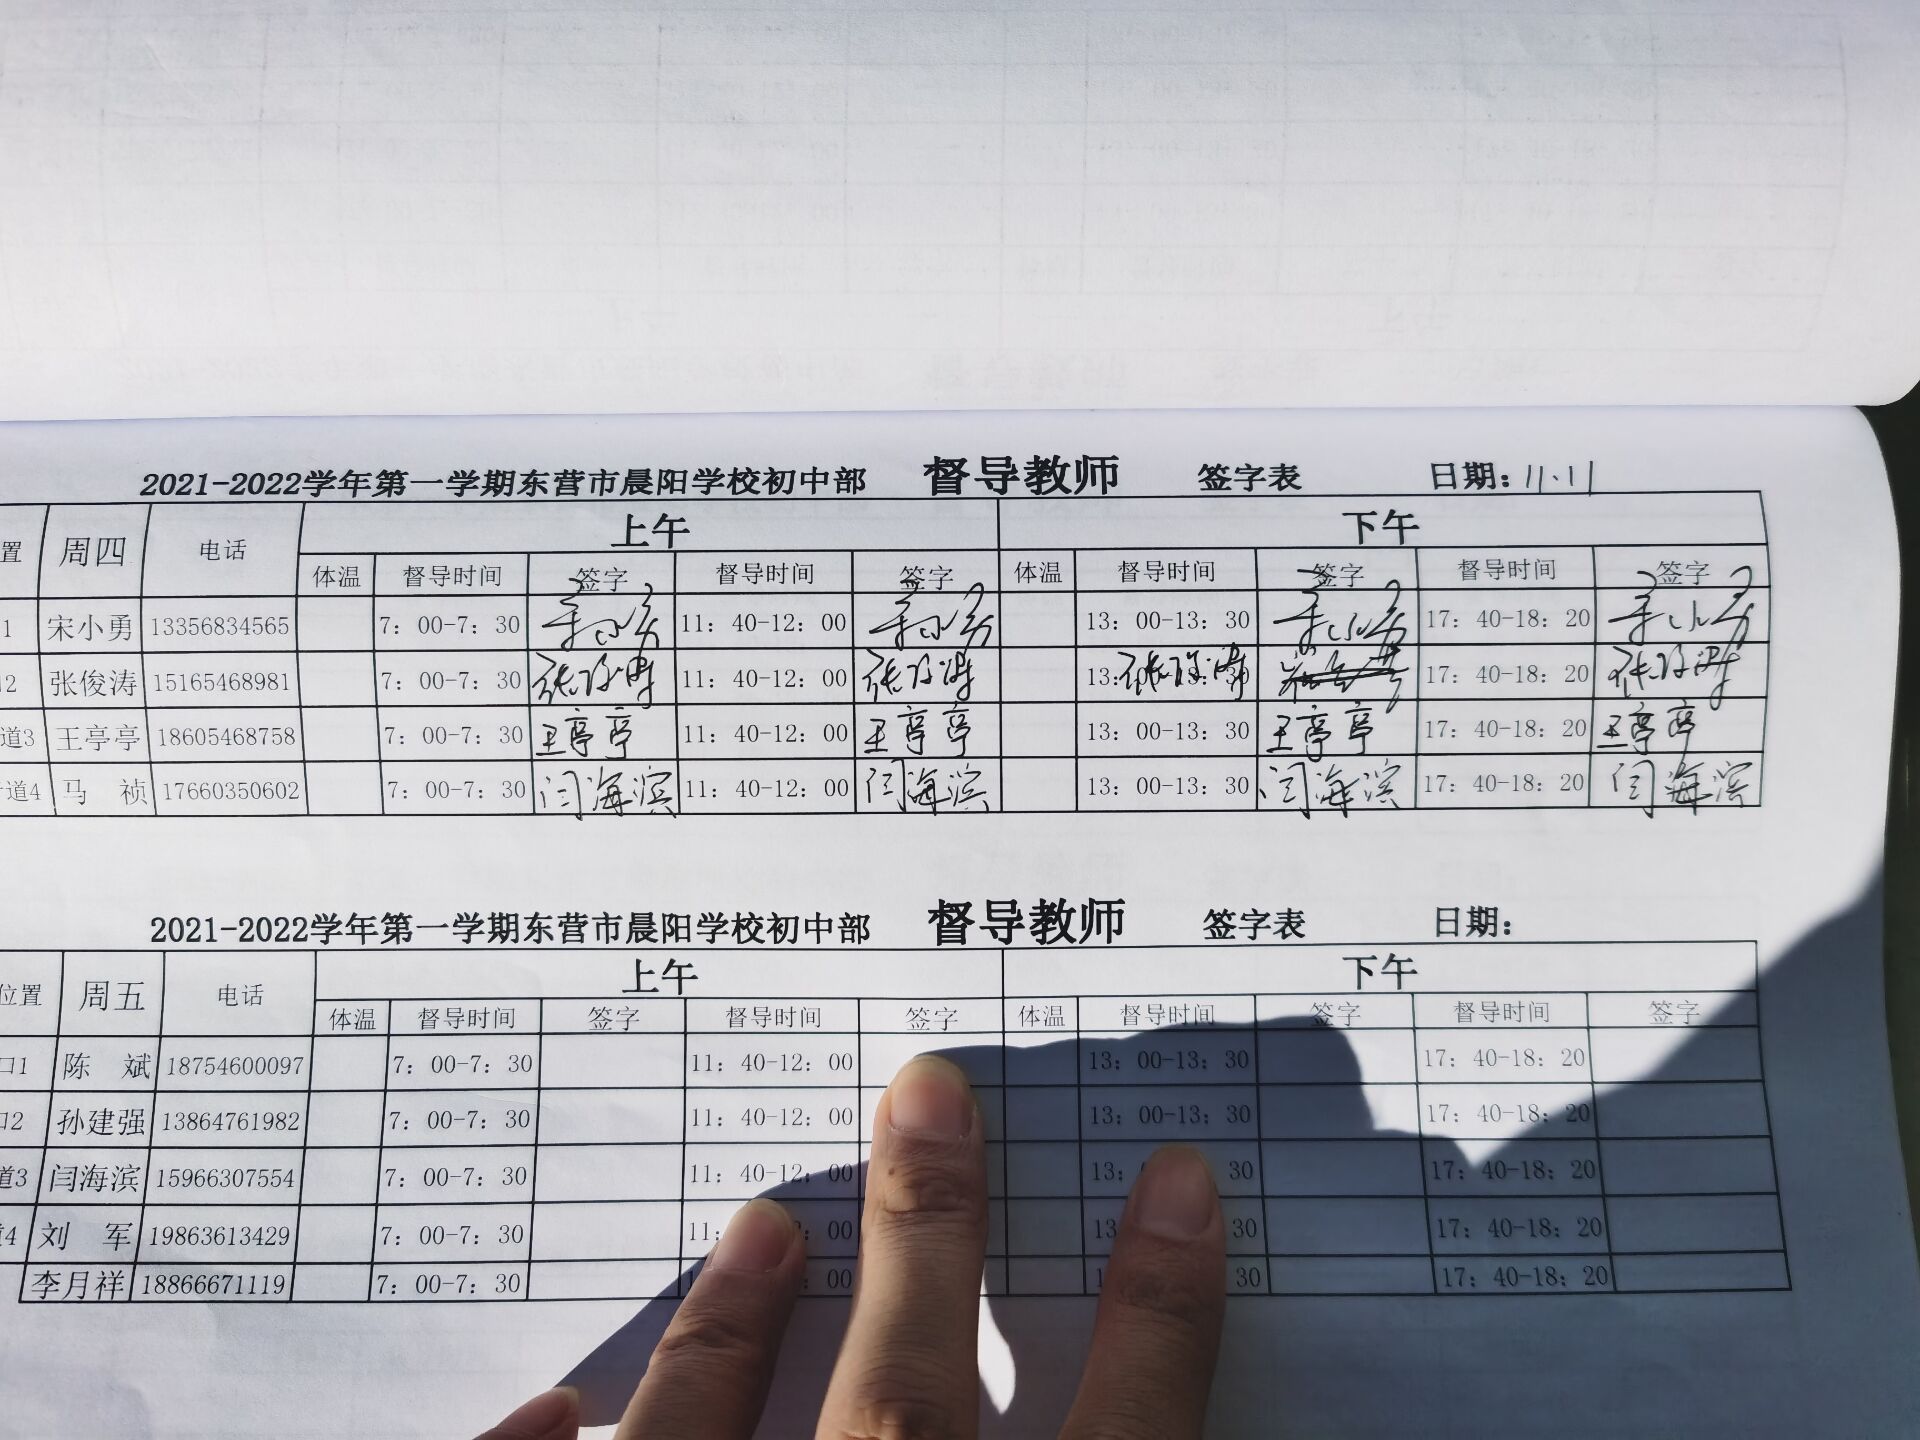 2021-2022学年第一学期东营市晨阳学校初中部 督导教师 签字表 日期: 11.11
置 周四 电话 上午 下午
体温 督导时间 签字 督导时间 签字 体温 督导时间 签字 督导时间 签字
1 宋小勇 13356834565 7: 00-7: 30 宋小勇 11: 40-12: 00 宋小勇 13: 00-13: 30 宋小勇 17: 40-18: 20 宋小勇
2 张俊涛 15165468981 7: 00-7: 30 张俊涛 11: 40-12: 00 张俊涛 13: 00-13: 30 张俊涛 17: 40-18: 20 张俊涛
道3 王亭亭 18605468758 7: 00-7: 30 王亭亭 11: 40-12: 00 王亭亭 13: 00-13: 30 王亭亭 17: 40-18: 20 王亭亭
道4 马 祯 17660350602 7: 00-7: 30 闫海滨 11: 40-12: 00 闫海滨 13: 00-13: 30 闫海滨 17: 40-18: 20 闫海滨
2021-2022学年第一学期东营市晨阳学校初中部 督导教师 签字表 日期:
位置 周五 电话 上午 下午
体温 督导时间 签字 督导时间 签字 体温 督导时间 签字 督导时间 签字
口1 陈 斌 18754600097 7: 00-7: 30 11: 40-12: 00 13: 00-13: 30 17: 40-18: 20
口2 孙建强 13864761982 7: 00-7: 30 11: 40-12: 00 13: 00-13: 30 17: 40-18: 20
道3 闫海滨 15966307554 7: 00-7: 30 11: 40-12: 00 13: 30 17: 40-18: 20
道4 刘 军 19863613429 7: 00-7: 30 11: 00 13 30 17: 40-18: 20
李月祥 18866671119 7: 00-7: 30 00 30 17: 40-18: 20